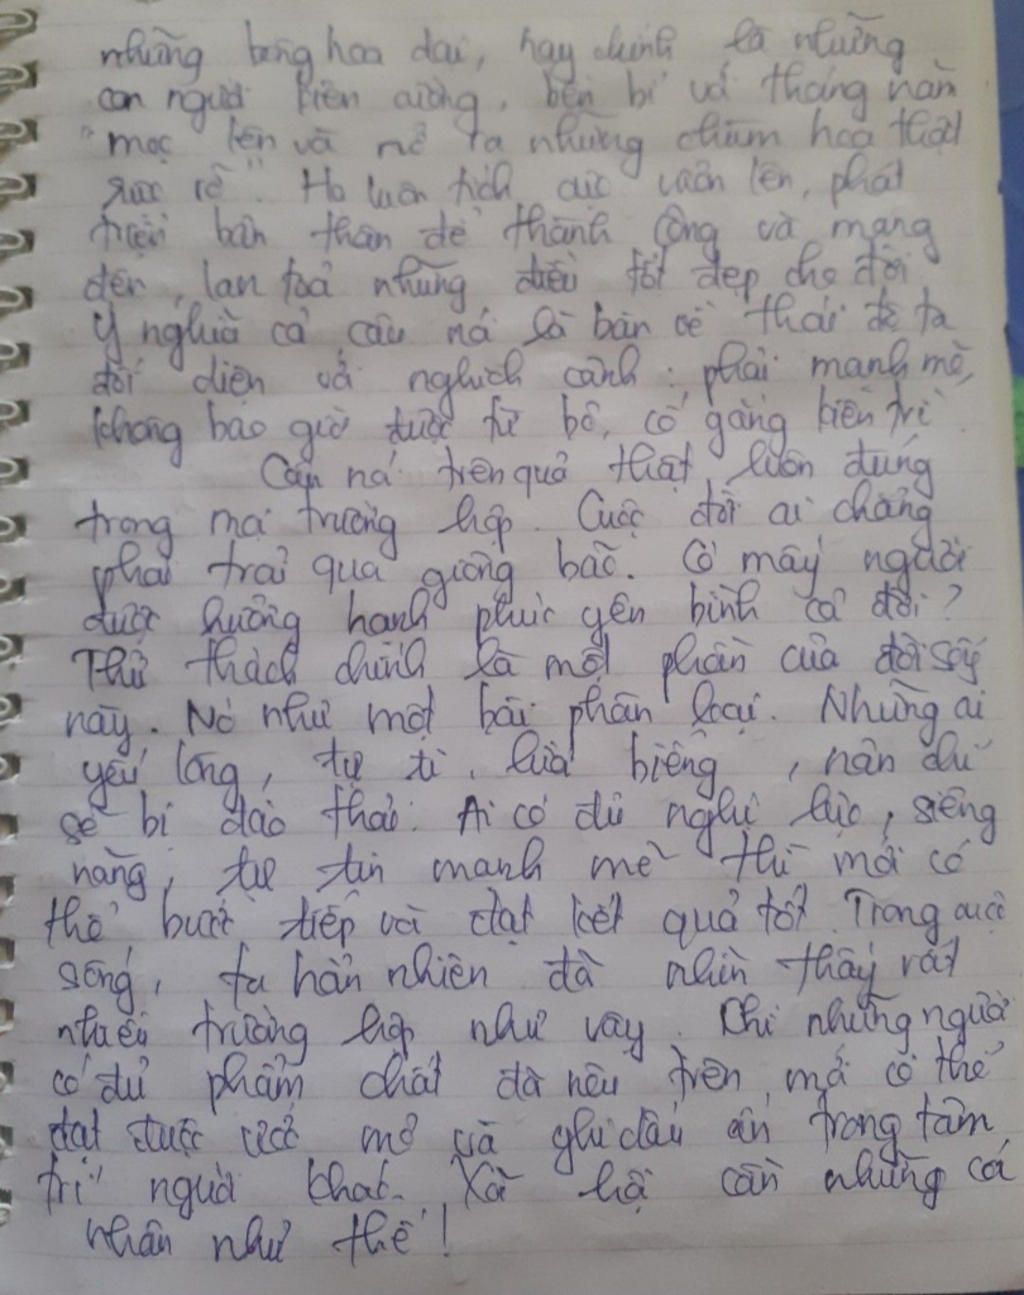 những bông hoa dại, hay chính là những
con người kiên cường, bền bỉ với tháng năm
"mọc lên và nở ra những chùm hoa thật
rực rỡ". Họ luôn tích cực vươn lên, phát
triển bản thân để thành công và mang
đến, lan toả những điều tốt đẹp cho đời.
Ý nghĩa cả câu nói là bàn về thái độ ta
đối diện với nghịch cảnh: phải mạnh mẽ,
không bao giờ được từ bỏ, cố gắng kiên trì.
Câu nói trên quả thật luôn đúng
trong mọi trường hợp. Cuộc đời ai chẳng
phải trải qua giông bão. Có mấy người
được hưởng hạnh phúc yên bình cả đời?
Thử thách chính là một phần của đời sống
này. Nó như một bài phân loại. Những ai
yếu lòng, tự ti, lười biếng, nản chí
sẽ bị đào thải. Ai có đủ nghị lực, siêng
năng, tự tin mạnh mẽ thì mới có
thể bước tiếp và đạt kết quả tốt. Trong cuộc
sống, ta hẳn nhiên đã nhìn thấy rất
nhiều trường hợp như vậy. Chỉ những người
có đủ phẩm chất đã nêu trên mới có thể
đạt được ước mơ và ghi dấu ấn trong tâm
trí người khác. Xã hội cần những cá
nhân như thế!